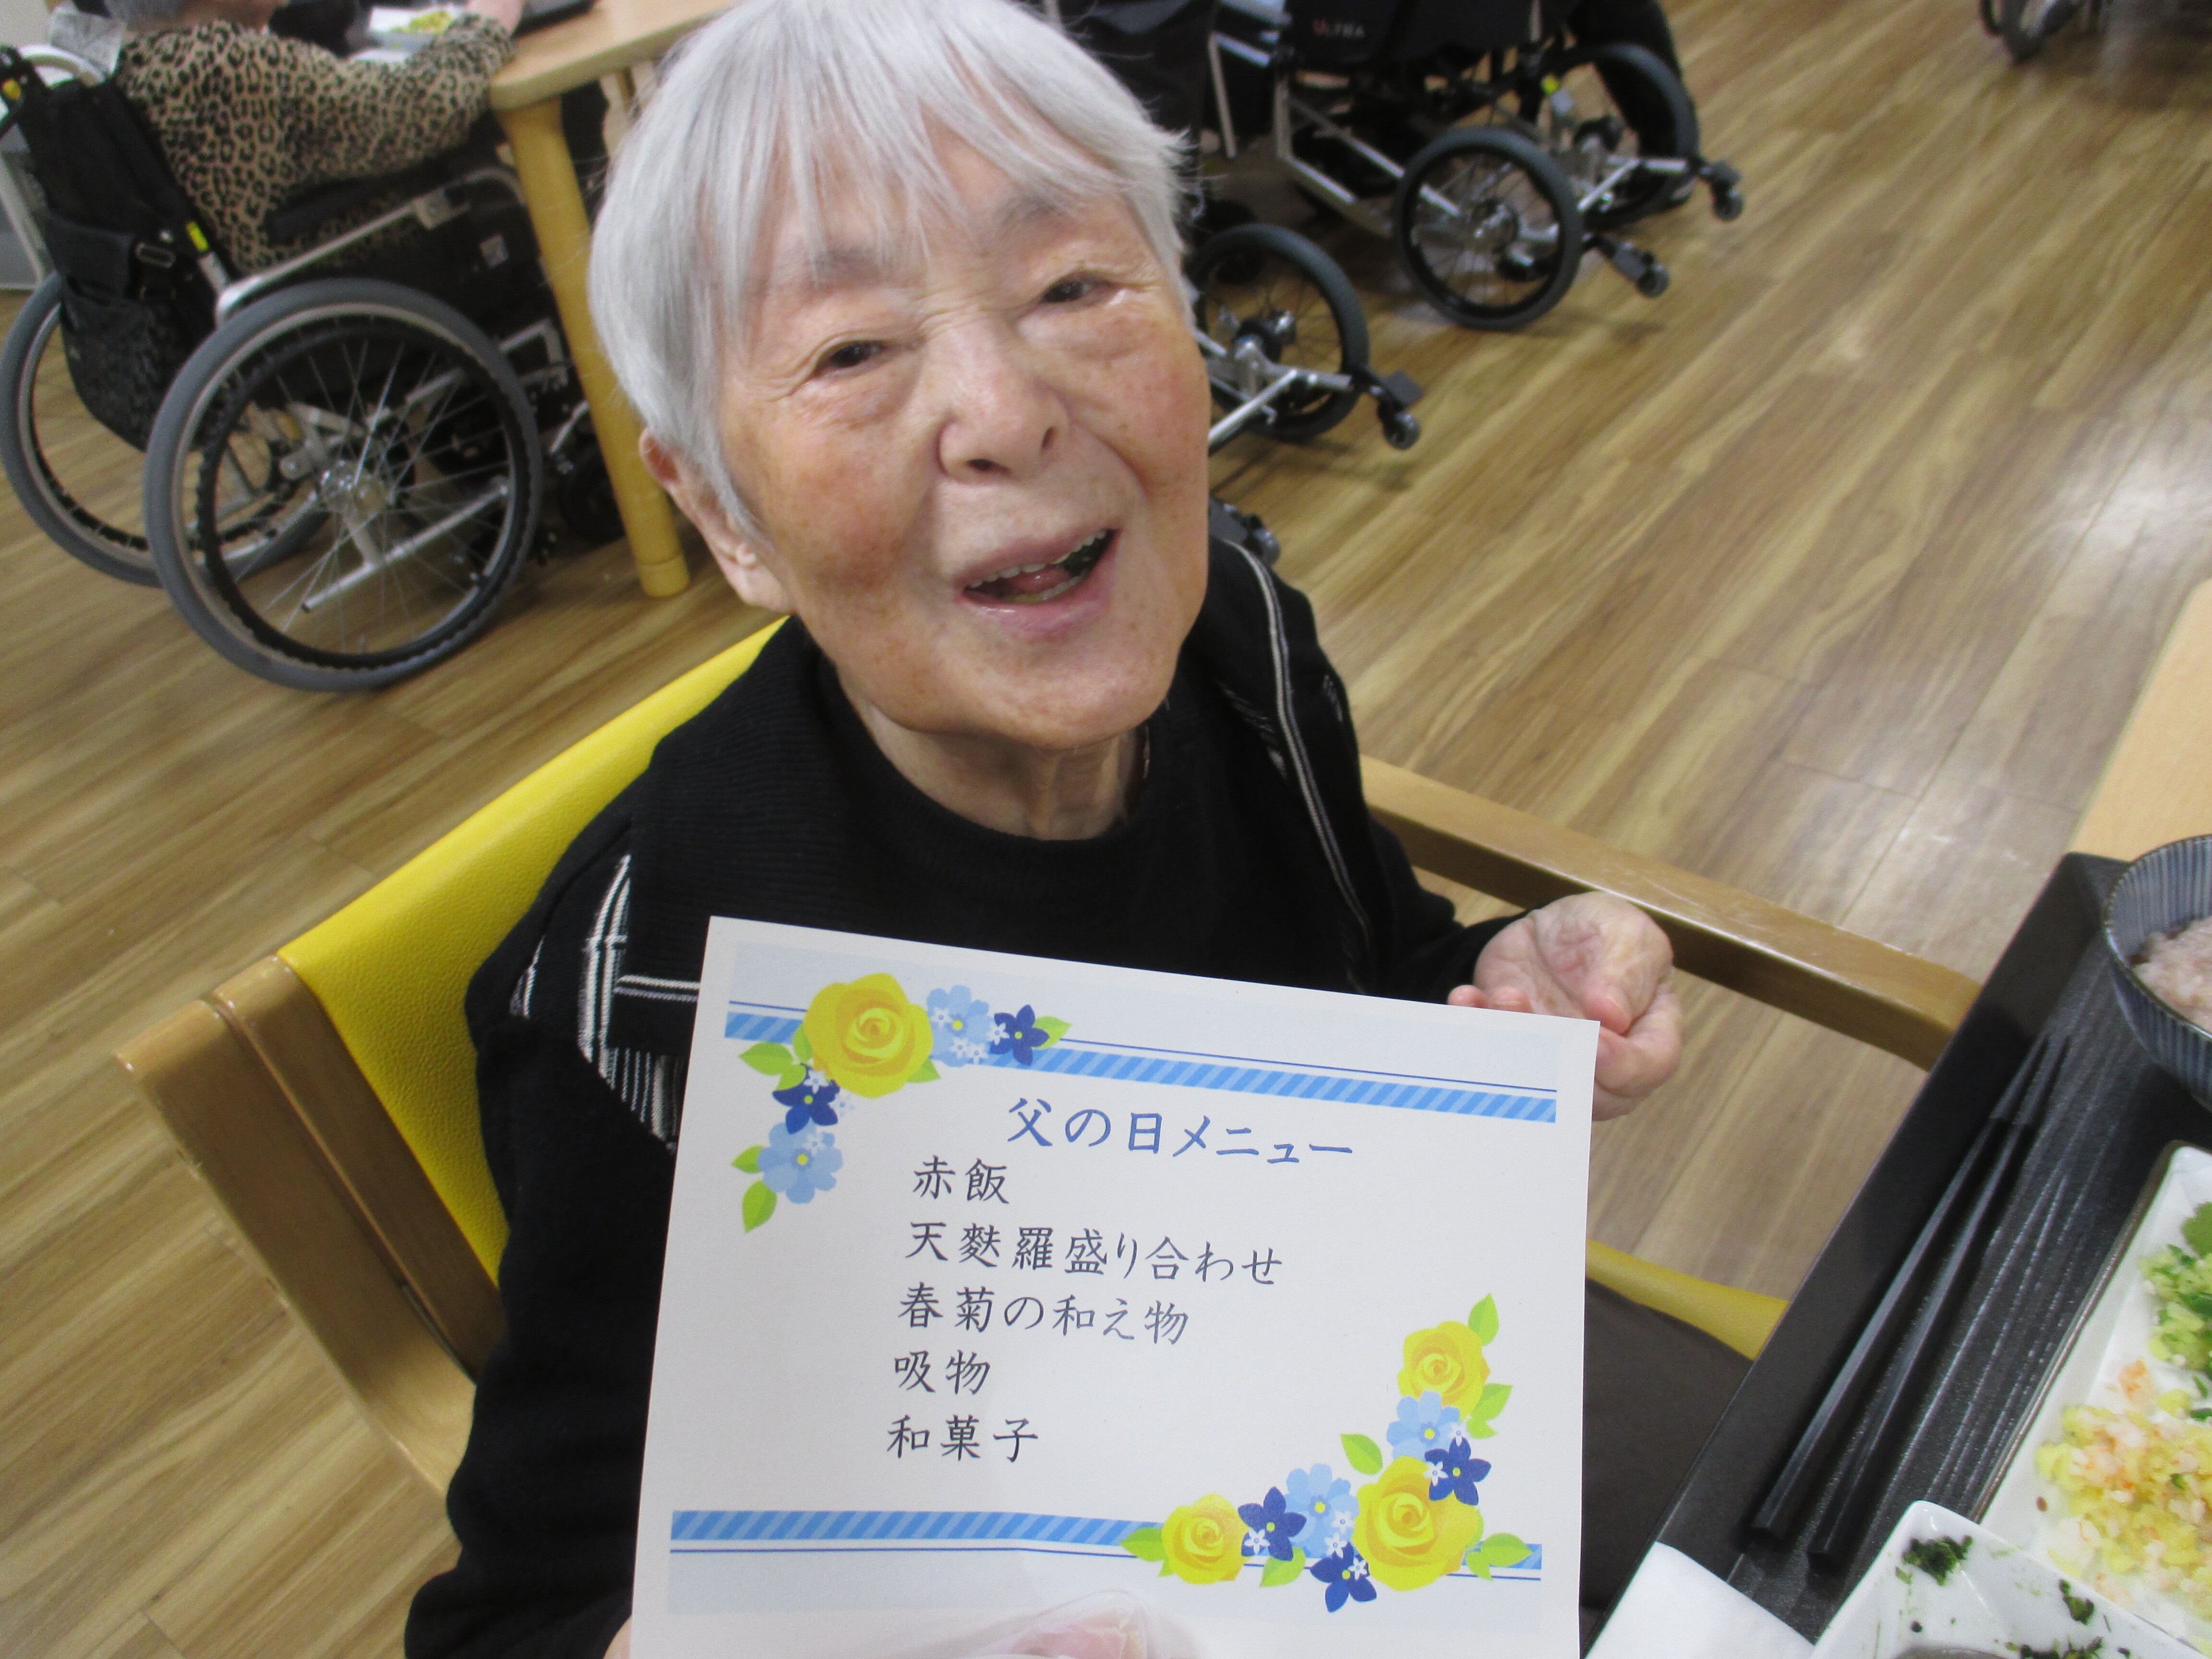 ULTRA
父の日メニュー
赤飯
天麩羅盛り合わせ
春菊の和え物
吸物
和菓子